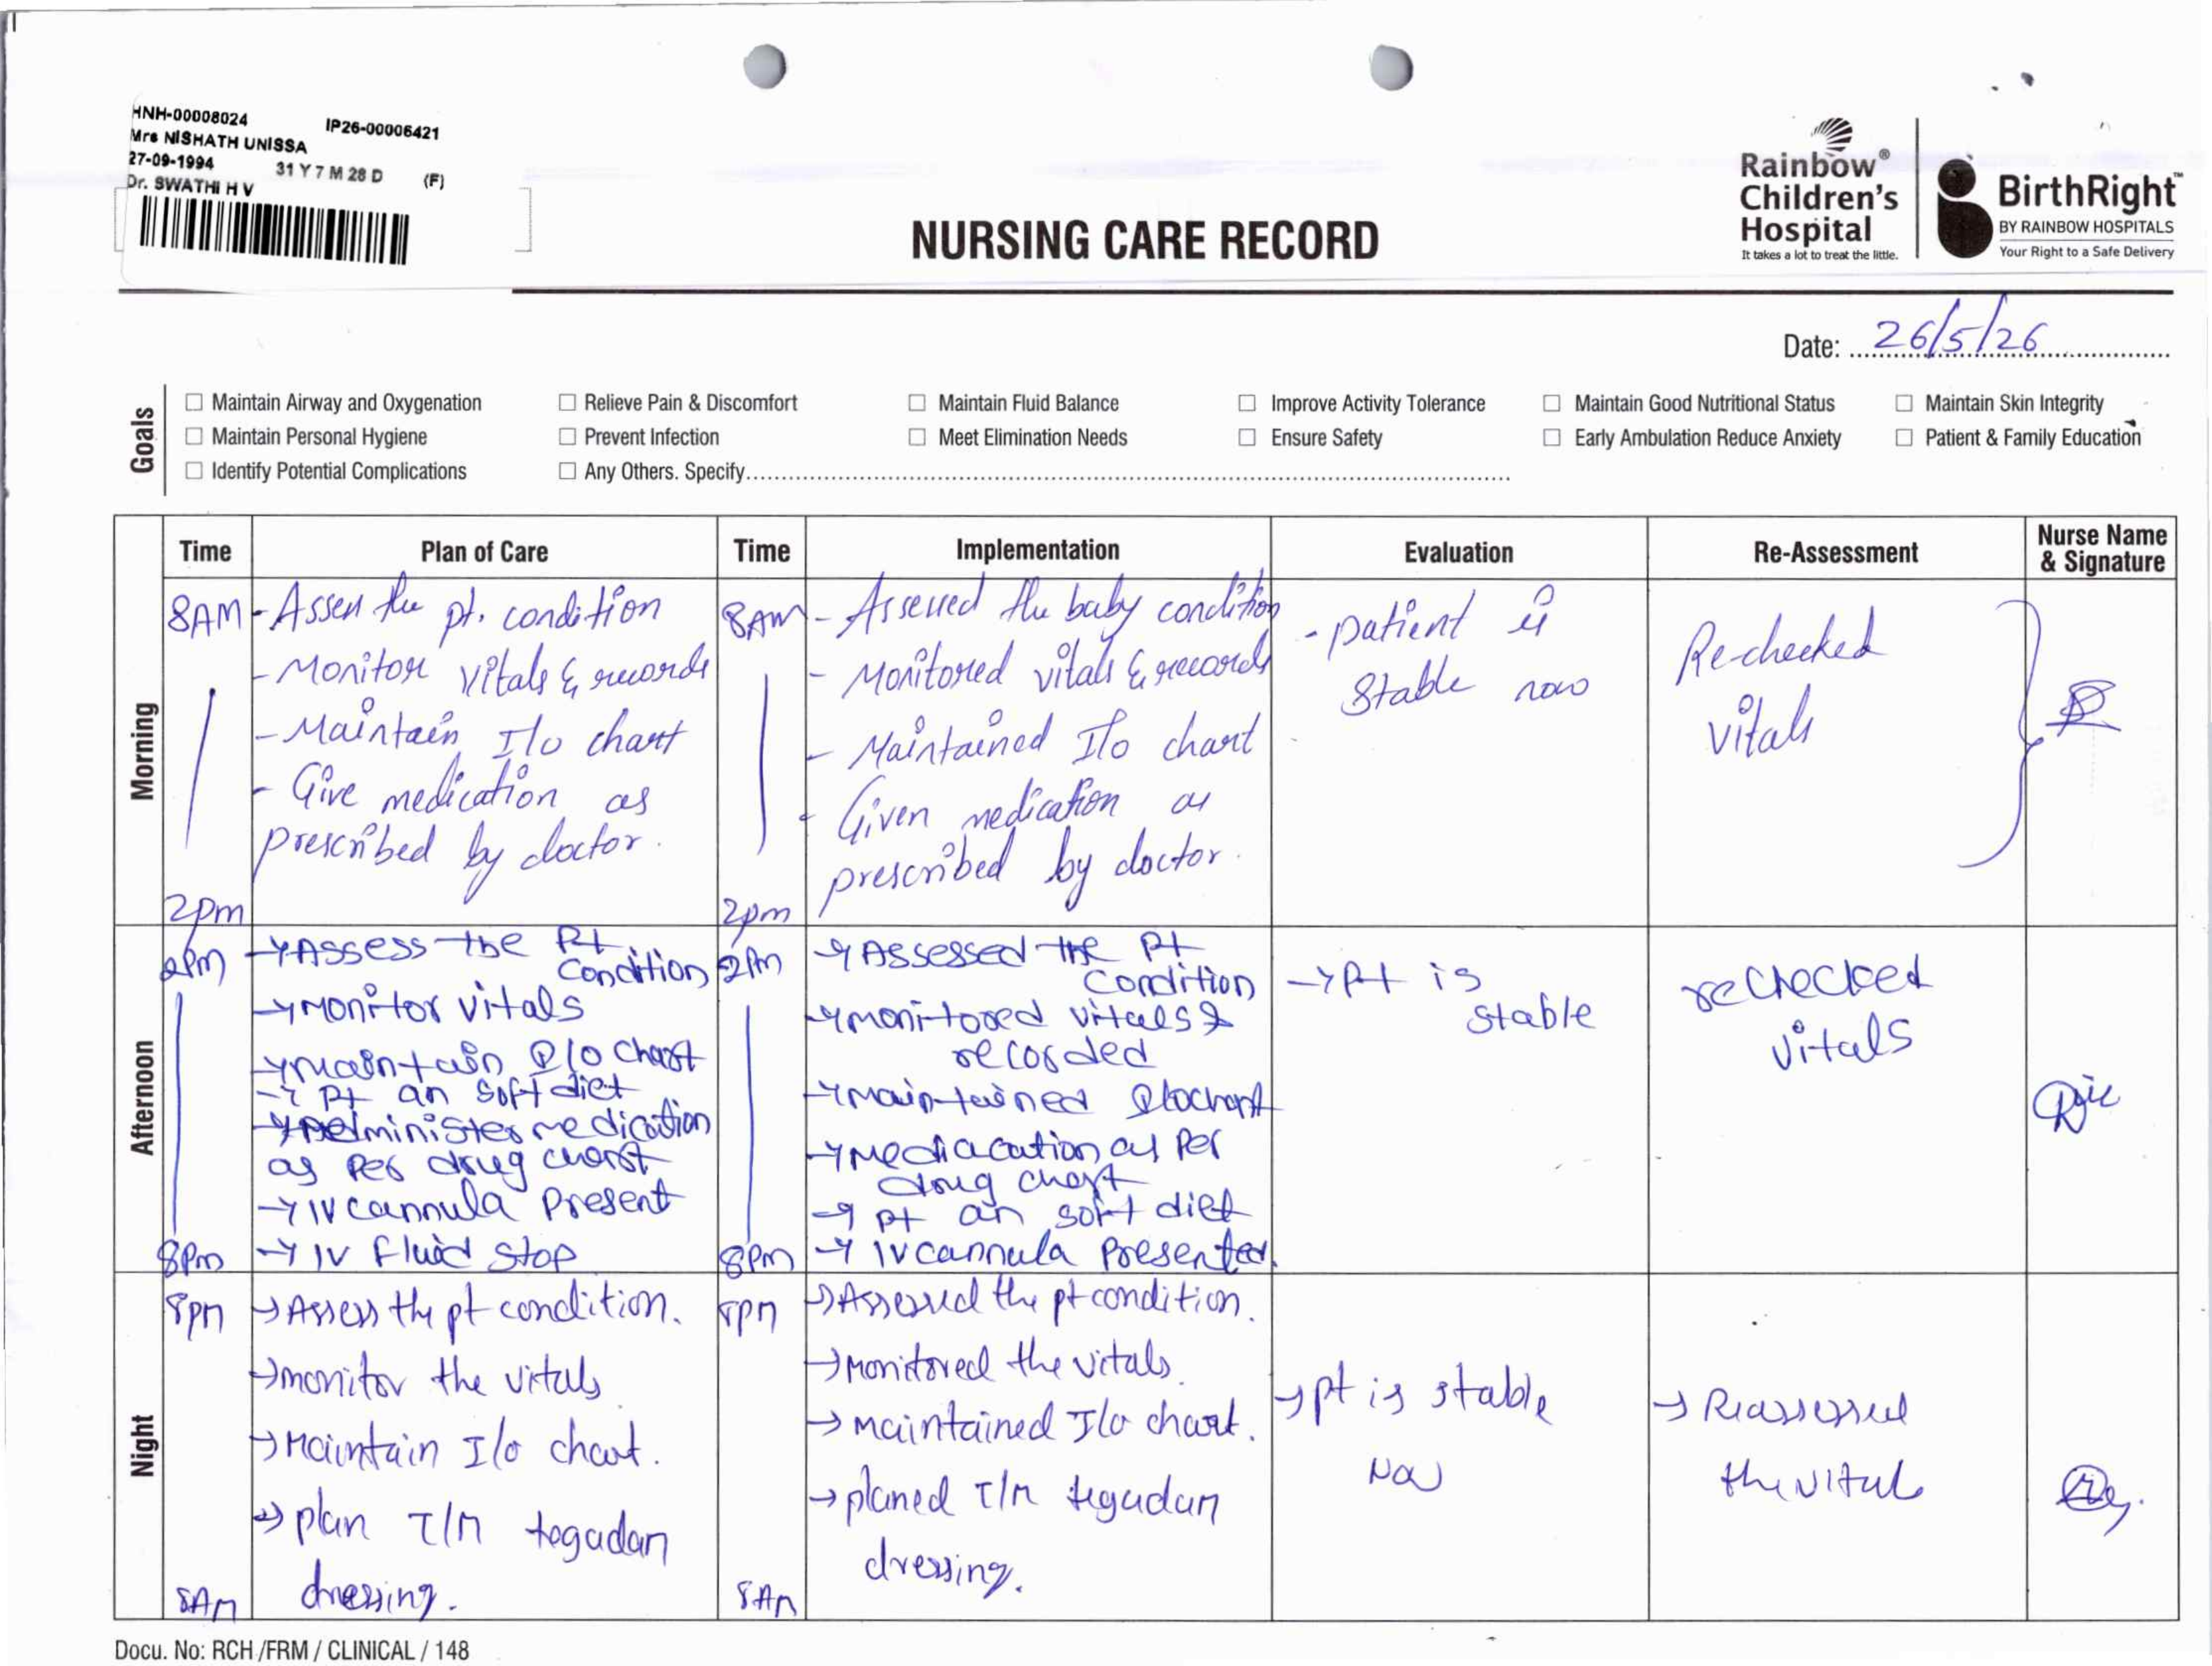 HNH-00008024 IP26-00006421
Mrs NISHATH UNISSA
27-09-1994 31 Y 7 M 28 D (F)
Dr. SWATHI H V
NURSING CARE RECORD
Rainbow®
Children's
Hospital
It takes a lot to treat the little.
BirthRight™
BY RAINBOW HOSPITALS
Your Right to a Safe Delivery
Date: 26/5/26
Goals
☐ Maintain Airway and Oxygenation ☐ Relieve Pain & Discomfort ☐ Maintain Fluid Balance ☐ Improve Activity Tolerance ☐ Maintain Good Nutritional Status ☐ Maintain Skin Integrity
☐ Maintain Personal Hygiene ☐ Prevent Infection ☐ Meet Elimination Needs ☐ Ensure Safety ☐ Early Ambulation Reduce Anxiety ☐ Patient & Family Education
☐ Identify Potential Complications ☐ Any Others. Specify
Time Plan of Care Time Implementation Evaluation Re-Assessment Nurse Name & Signature
Morning
8AM
2pm
- Assess the pt. condition
- Monitor vitals & records
- Maintain I/o chart
- Give medication as
prescribed by doctor.
8AM
2pm
- Assessed the baby condition
- Monitored vitals & records
- Maintained I/o chart
- Given medication as
prescribed by doctor.
- patient is
stable now
Re-checked
vitals
Afternoon
2pm
8pm
→ Assess the Pt
condition
→ Monitor vitals
→ maintain I/o chart
→ Pt an soft diet
→ Administer medication
as Per drug chart
→ IV cannula present
→ IV fluid stop
2pm
8pm
→ Assessed the Pt
condition
→ monitored vitals &
recorded
→ maintained I/o chart
→ Mediacation as Per
drug chart
→ pt an soft diet
→ IV cannula presented.
→ Pt is
stable
rechecked
vitals
Night
8pm
8AM
→ Assess the pt condition.
→ monitor the vitals
→ Maintain I/o chart.
→ plan T/m tegadam
dressing.
8pm
8AM
→ Assessed the pt condition.
→ Monitored the vitals.
→ maintained I/o chart.
→ planed T/m tegadam
dressing.
→ pt is stable
Now
→ Reassessed
the vitals
Docu. No: RCH /FRM / CLINICAL / 148